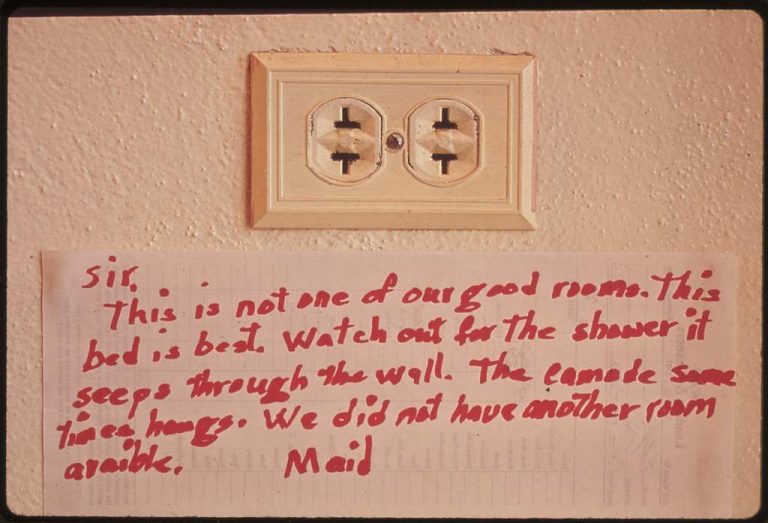 Sir.
This is not one of our good rooms. This
bed is best. Watch out for the shower it
seeps through the wall. The camode some
times hangs. We did not have another room
avaible. Maid